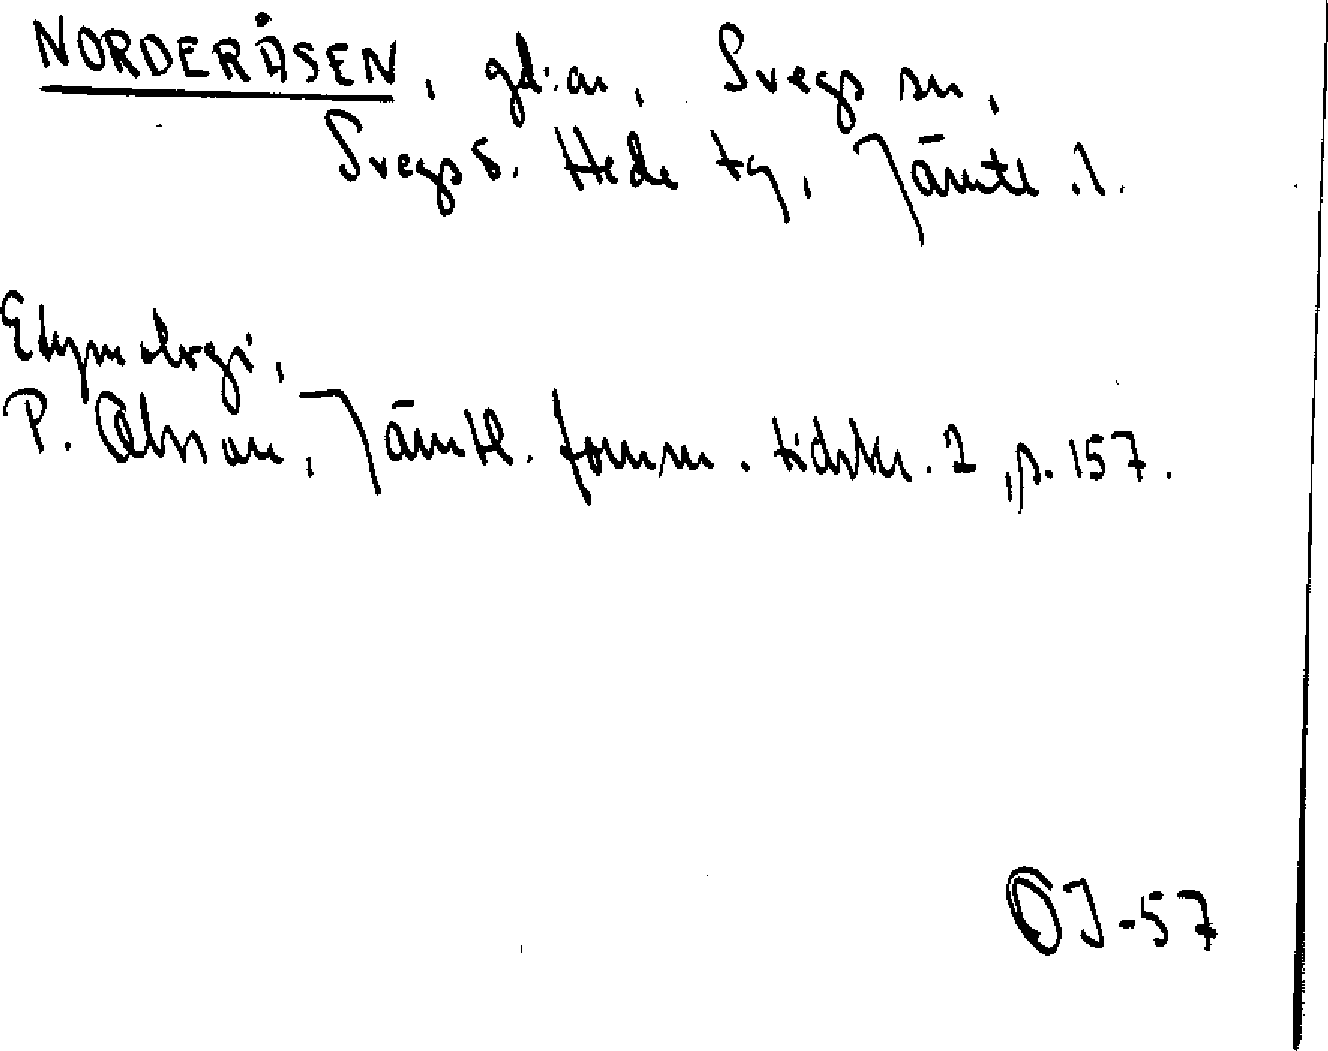 NORDERÅSEN, gd:ar, Svegs sn,
Svegs s. Hede tg, Jämtl. l.
Etymologi,
P. Olsson, Jämtl. fornm. tidskr. 2, s. 157.
OJ-57